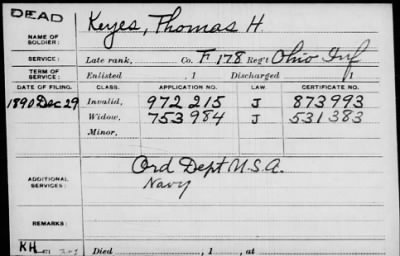 DEAD
NAME OF SOLDIER: Keyes, Thomas H.
SERVICE: Late rank, Co. F 178 Reg't Ohio Inf
TERM OF SERVICE: Enlisted , 1 Discharged , 1
DATE OF FILING. CLASS. APPLICATION NO. LAW. CERTIFICATE NO.
1890 Dec 29 Invalid, 972 215 J 873993
Widow, 753984 J 531383
Minor,
ADDITIONAL SERVICES: Ord Dept U.S.A.
Navy
REMARKS:
KH
Died , 1 , at